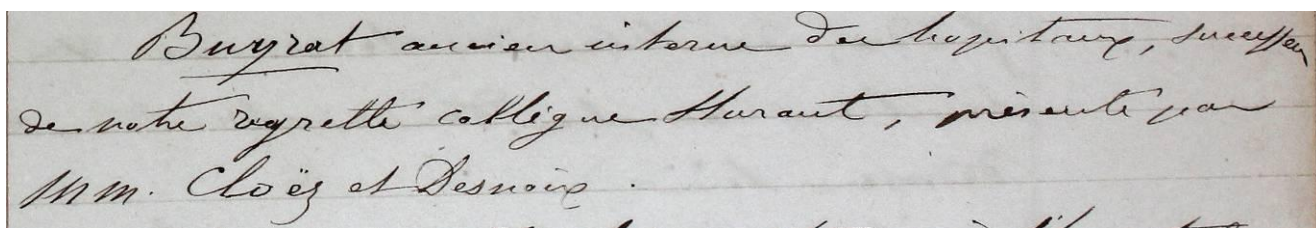 Buyrat ancien interne des hopitaux, successeur
de notre regretté collègue Huraut, présenté par
MM. Cloëz et Desnoix.